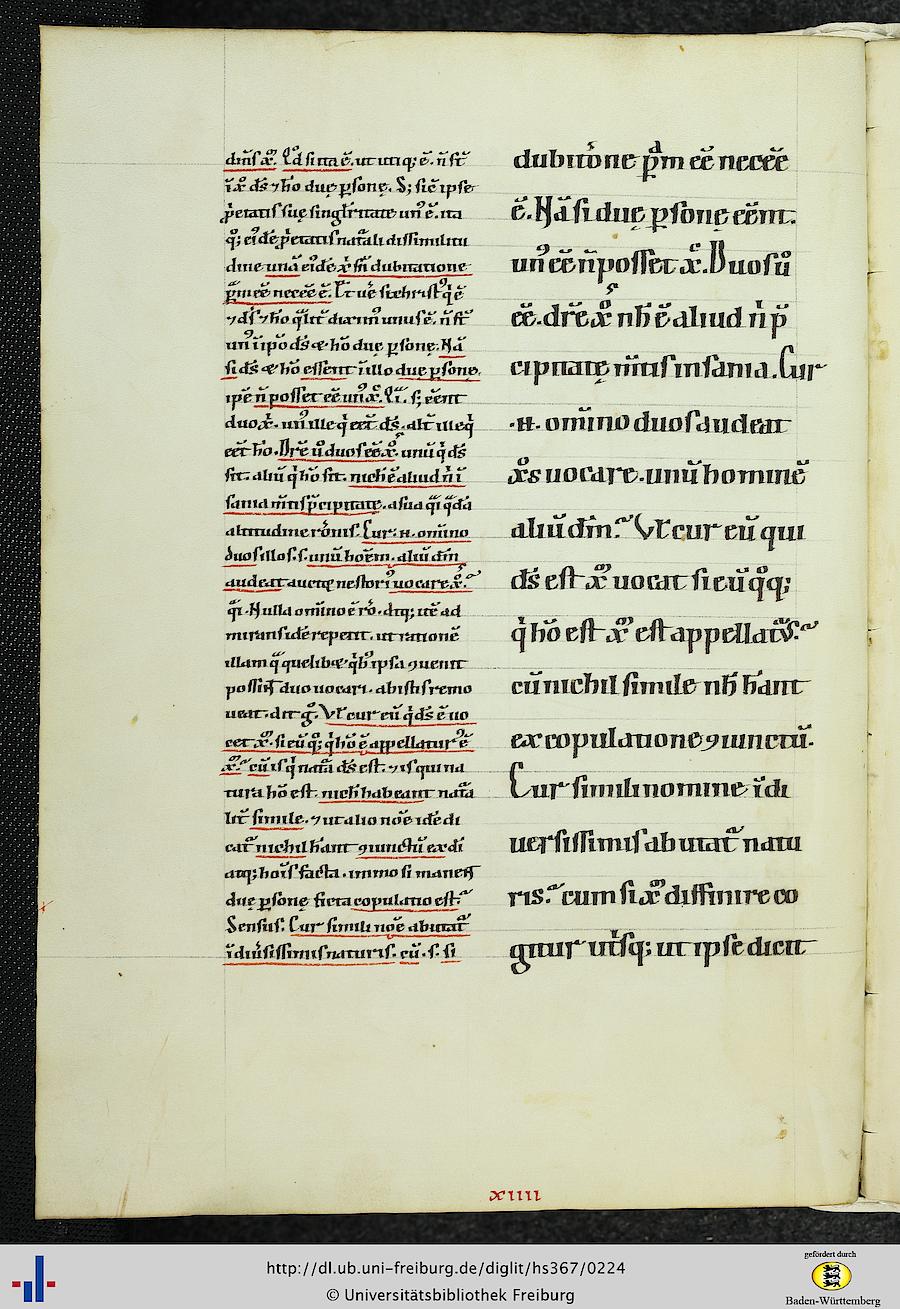 diuisa x͞. Qd̊ si ita ē. ut utiq; ē. n̄ st̄
ī x͞o d̄s ⁊ hō due p̲sonę. S; sic̄ ipse
p̄etatis suę singl'ritate un' ē. ita
q; eidē p̄etatis nat͞ali dissimilitu
dine unā eidē x͞i sn̄ dubitatione
p̲sonā eē necēe ē. Et
⁊ d̄s ⁊ hō
due p̲sonę. Nā
si d̄s & hō essent in illo due p̲sonę.
ipē n̄ posset eē un' x͞. Q̄i. s; eēnt
duo x͞i. un' ille q̇ eēt d̄s. alt̄ ille q̇
eēt hō. Dr̄e ū duos eē x͞os. unū q̇ d̄s
sit. aliū q̇ hō sit. nich̄ ē aliud n̄ i
sania m̄tis p̄cipitate. a sua
altitudine rōnis. Cur. n̄. om̄ino
duos illos. s. unū hoēm. aliū d̄m
audeat auctę nestori' uocare x͞os?
q̄i. Nulla om̄ino ē rō. atq; itē ad
mirans idē repetit. ut rationē
illam q̄ quelib& q̇b' ipsa ꝯuenit
possint duo uocari. ab istis remo
ueat. dit g̊. Vl' cur eū q̇ d̄s ē uo
cet x͞m. si eū q; q̇ hō ē appellatur' ē
x͞m? cū is q̇ nat͞a d̄s est. ⁊ is qui na
tura hō est. nich̄ habeant nat͞a
simile. ⁊ ut alio noīe idē di
cat̄ nichil h̄ant ꝯiunctū ex di
atq; hoīs facta. immo si manent
due p̲sonę ficta copulatio est?
Sensus. Cur simili noīe abutat̄
ī diu'sissimis naturis. cū. s. si
dubitōne p̲m eē necēe
ē. Nā si duę p̲sonę eēnt.
un' eē n̄ posset x͞. Duos ū
eē. dr̄e x͞os nh̄ ē aliud n̄ p̄
cipitatę m̄tis insania. Cur
.n̄. om̄ino duos audeat
x͞os uocare. unū hominē
aliū d̄m? Vl' cur eū qui
d̄s est x͞m uocat si eū q̊q;
q̇ hō est x͞m est appellatur'?
cū nichil simile nh̄ h̄ant
ex copulatione ꝯiunctū.
Cur simili nomine ī di
uersissimis abutat̄ natu
ris? cum si x͞m diffinire co
gitur ut̄sq; ut ipse dicit
xiiii
http://dl.ub.uni-freiburg.de/diglit/hs367/0224
© Universitätsbibliothek Freiburg
gefördert durch
Baden-Württemberg